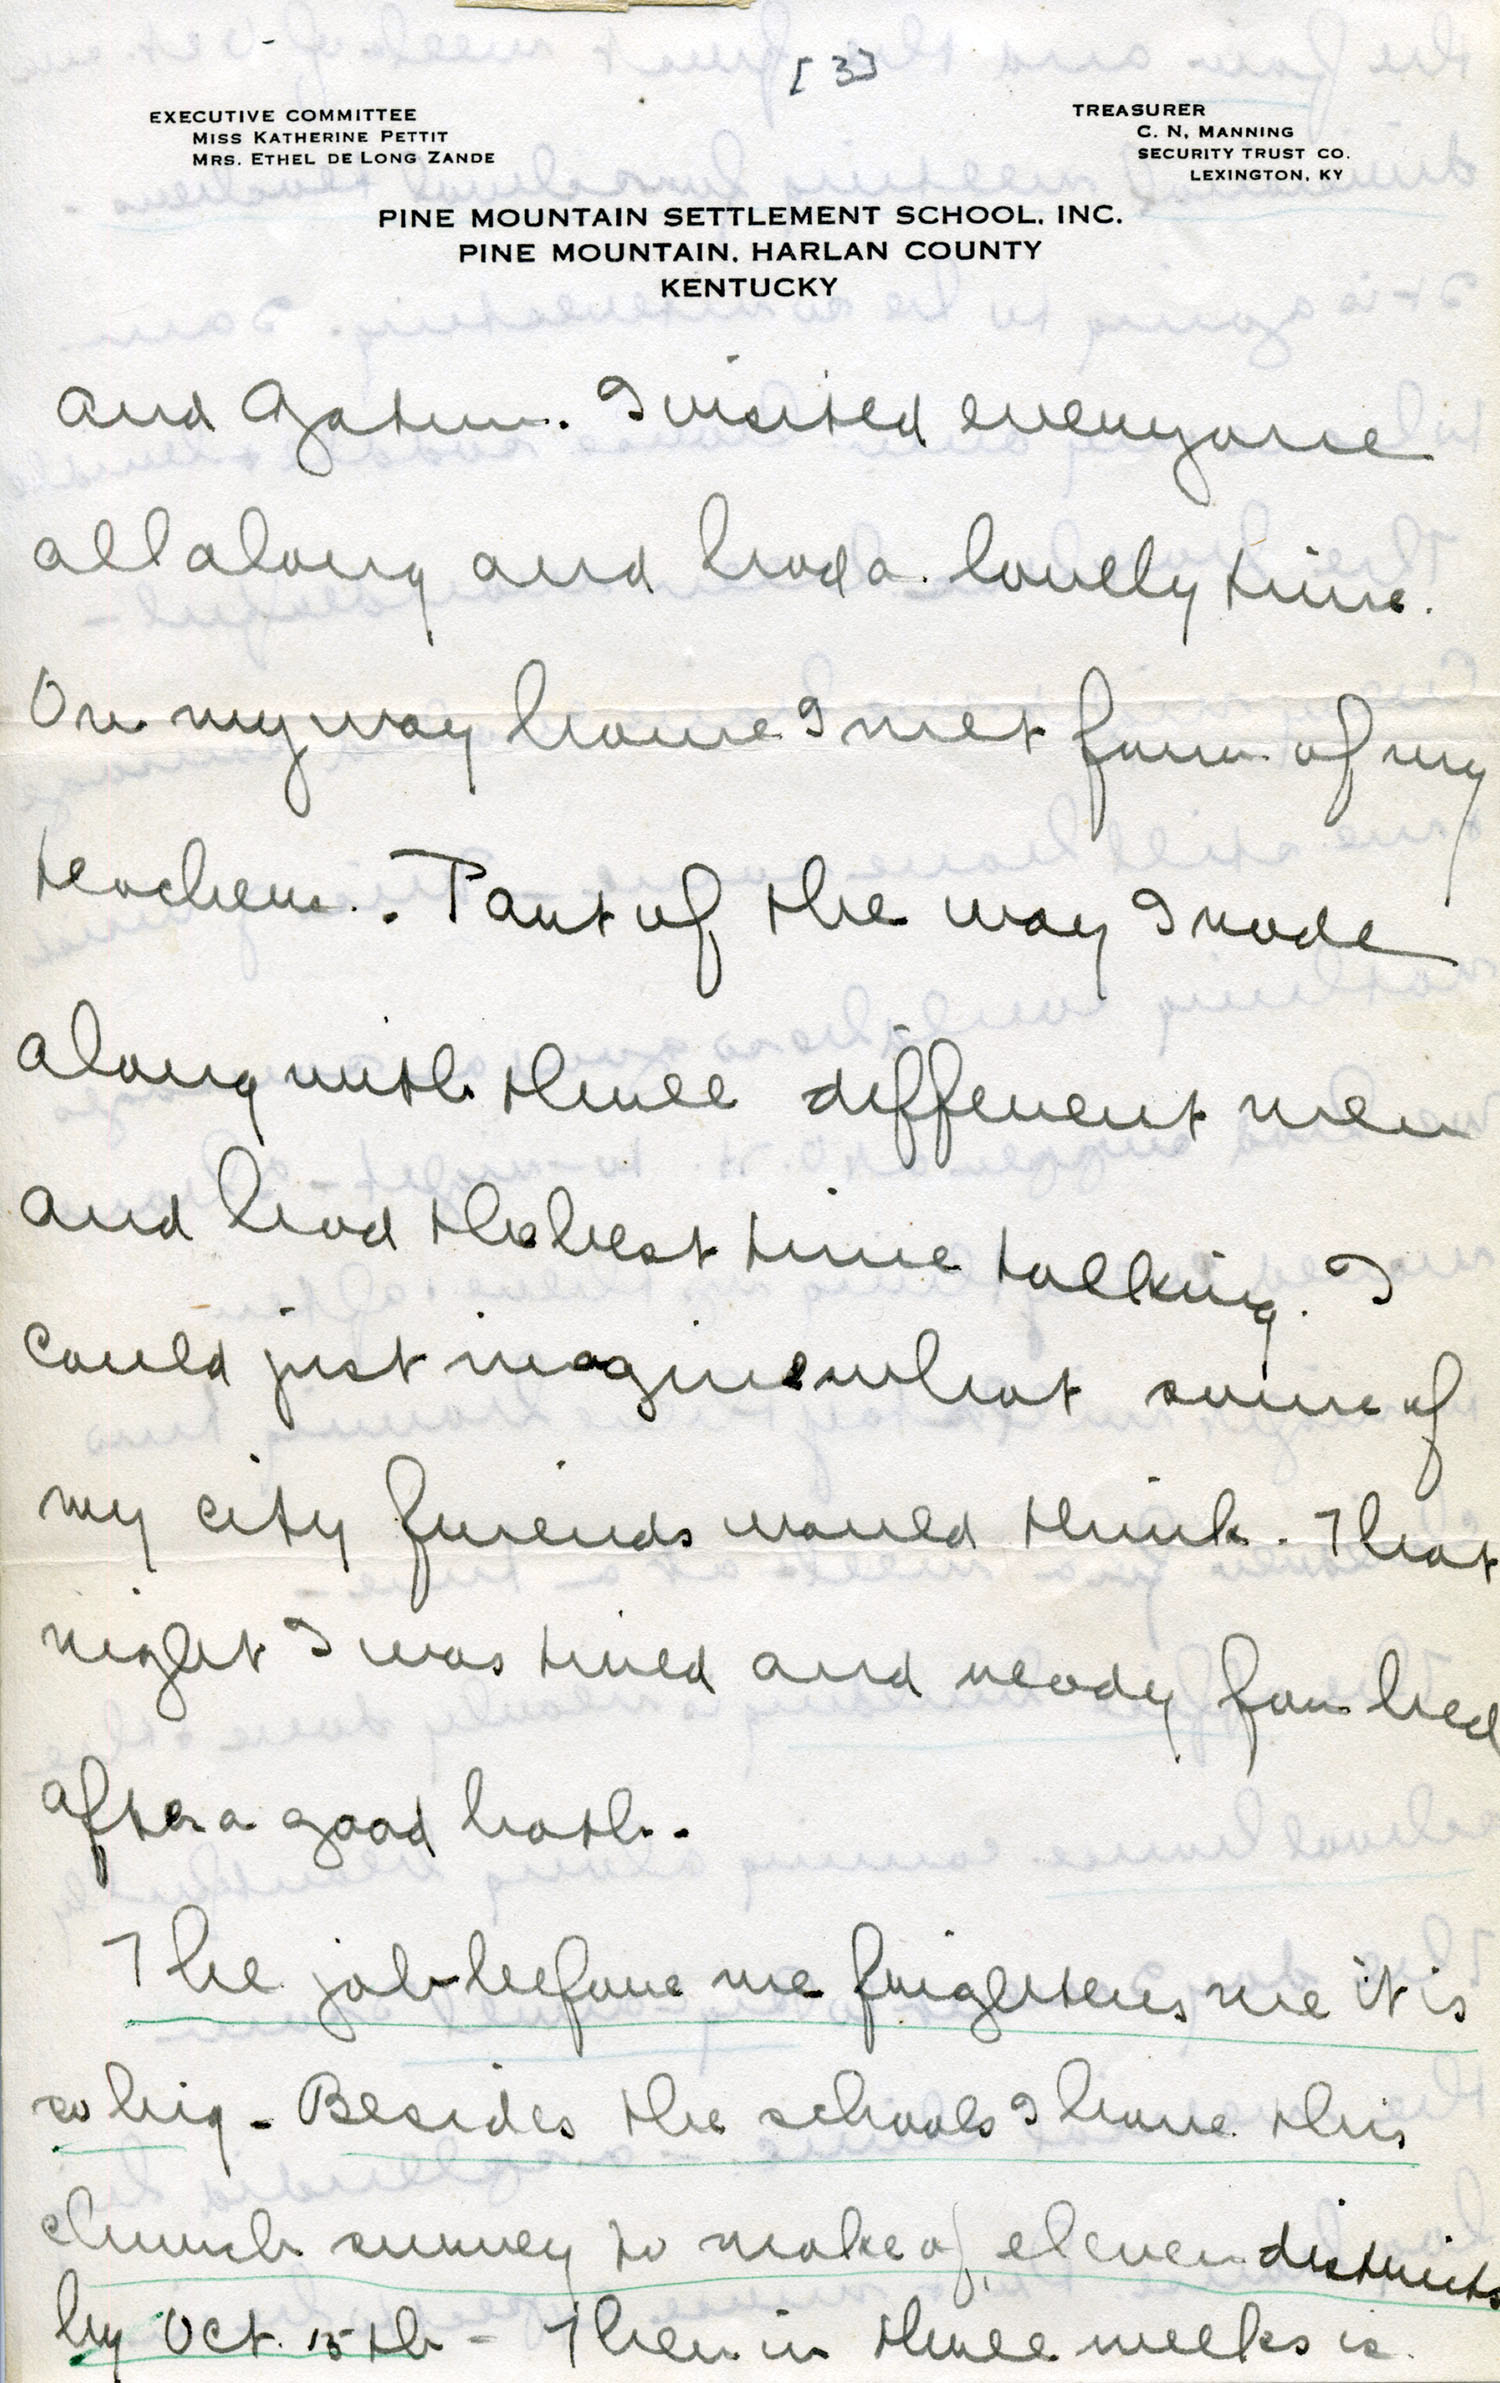 [3]
EXECUTIVE COMMITTEE
MISS KATHERINE PETTIT
MRS. ETHEL DE LONG ZANDE
TREASURER
C. N. MANNING
SECURITY TRUST CO.
LEXINGTON, KY
PINE MOUNTAIN SETTLEMENT SCHOOL, INC.
PINE MOUNTAIN, HARLAN COUNTY
KENTUCKY
and Gatun. I visited everyone
all along and had a lovely time.
On my way home I met four of my
teachers. Part of the way I rode
along with three different men
and had the best time talking. I
could just imagine what some of
my city friends would think. That
night I was tired and ready for bed
after a good bath.
The job before me frightens me it is
so big - Besides the schools I have this
church survey to make of eleven districts
by Oct. 15th - Then in three weeks is